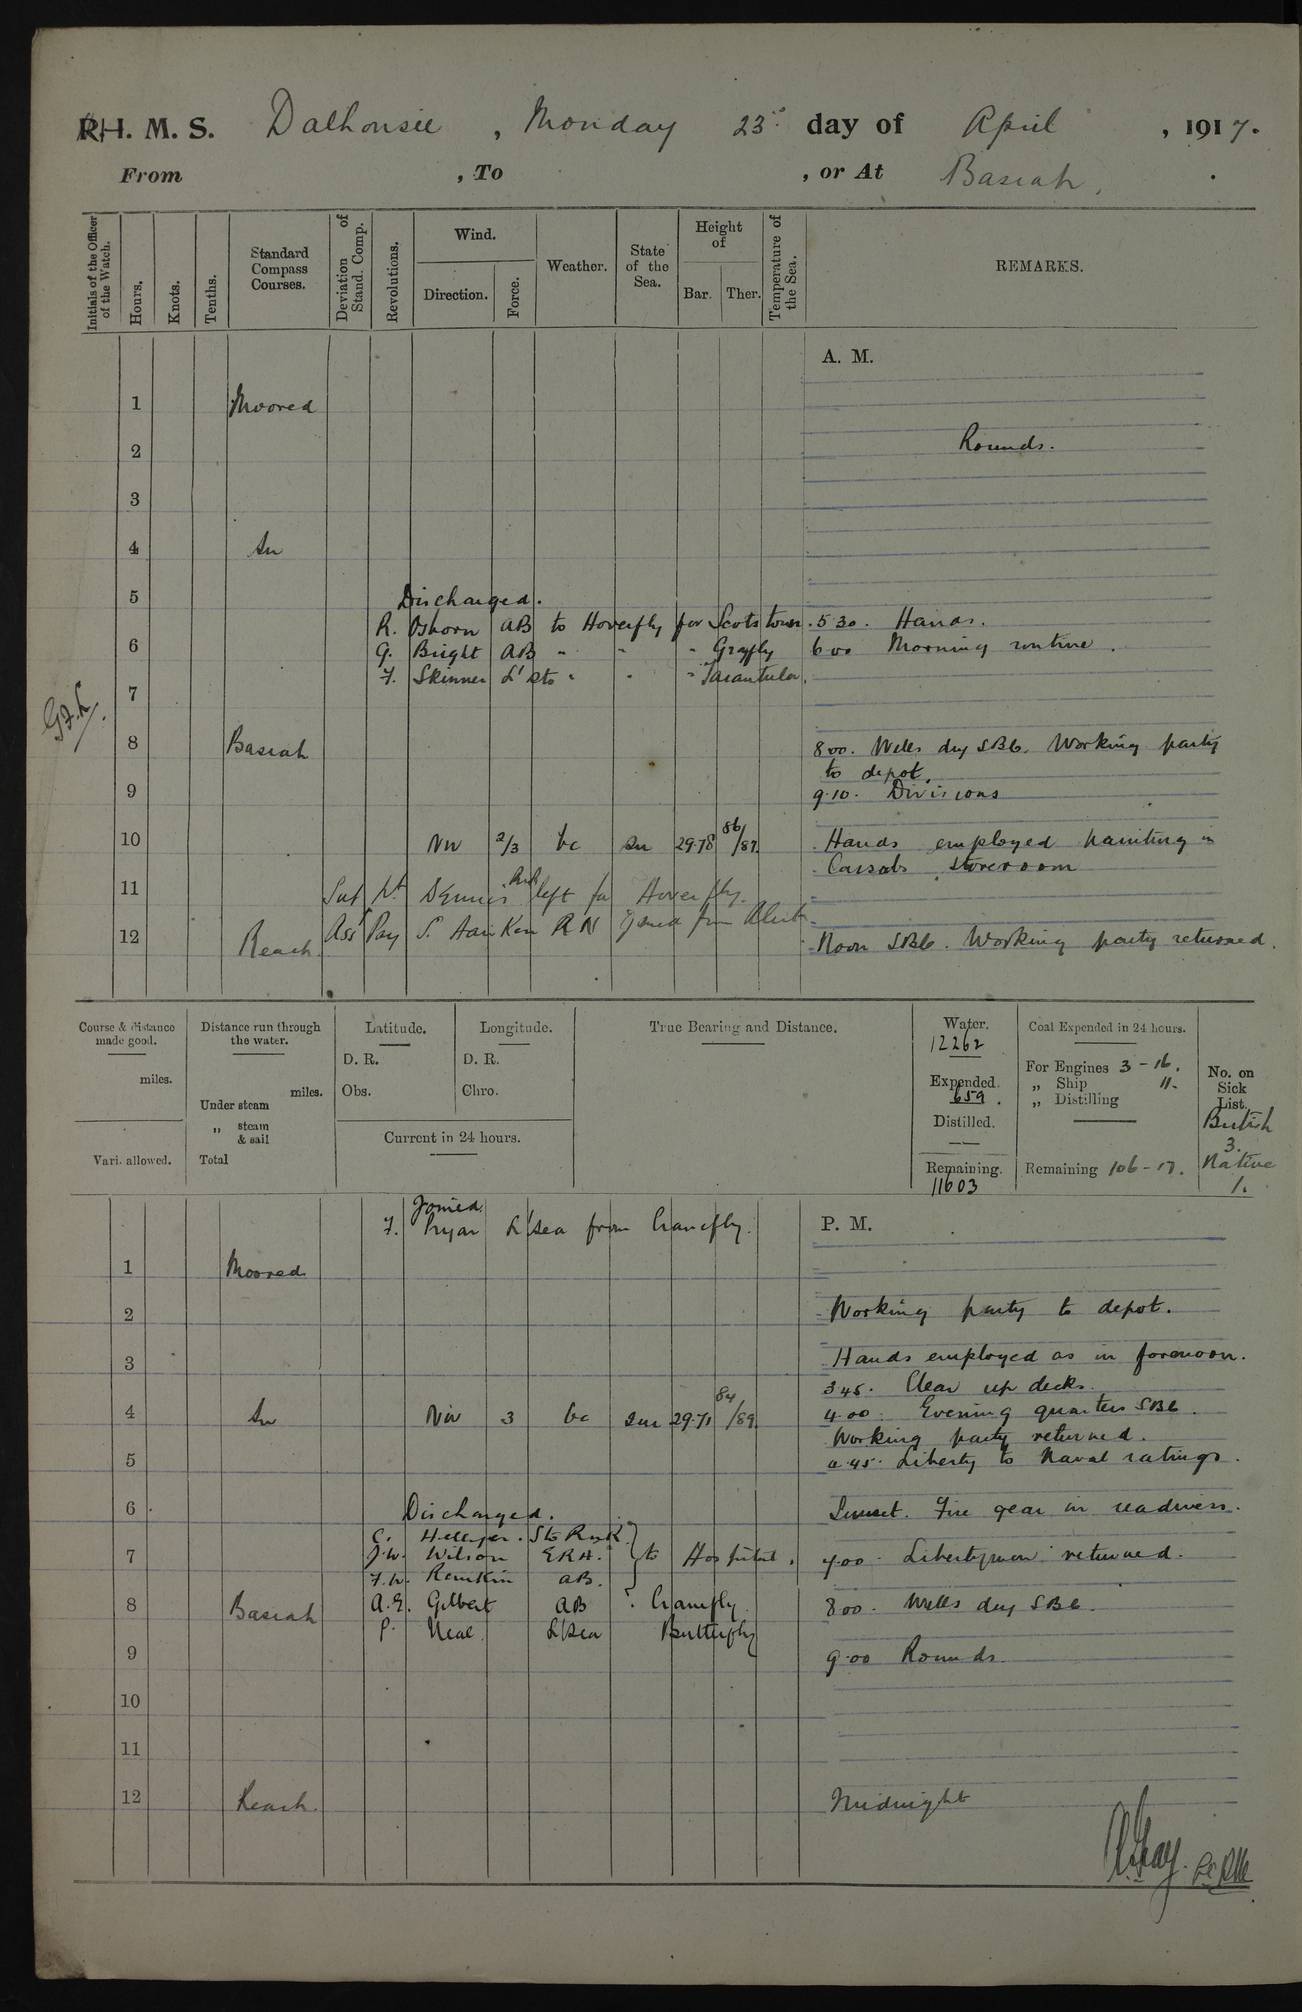 R.I.M.S. Dalhousie, Monday 23rd day of April, 1917.
From , To , or At Basrah.
Initials of the Officer of the Watch.
Hours.
Knots.
Tenths.
Standard Compass Courses.
Deviation of Stand. Comp.
Revolutions.
Wind.
Direction.
Force.
Weather.
State of the Sea.
Height of
Bar.
Ther.
Temperature of the Sea.
REMARKS.
A. M.
1 Moored
2 Rounds.
3
4 In
5 Discharged.
R. Osborn AB to Hoverfly for Scotstoun. 5 30. Hands.
6 G. Bright AB " " " Grayfly 6 00 Morning routine.
F. Skinner L' Sto " " " Tarantula.
7
8 Basrah 8 00. Wells dry SBC. Working party
to depot.
9 9.10. Divisions
10 NW 2/3 bc sm 29.78 86/87. Hands employed painting in
Cassabs storeroom
11 Sub Lt Dennis RNR left for Hoverfly.
12 Reach Asst Pay S. Hankin RN joined from Alert
Noon SBC. Working party returned.
Course & distance made good.
miles.
Vari. allowed.
Distance run through the water.
miles.
Under steam
„ steam & sail
Total
Latitude.
D. R.
Obs.
Longitude.
D. R.
Chro.
Current in 24 hours.
True Bearing and Distance.
Water.
12262
Expended.
659.
Distilled.
Remaining.
11603
Coal Expended in 24 hours.
For Engines 3 - 16.
„ Ship 11.
„ Distilling
Remaining 106 - 17.
No. on Sick List.
British
3.
Native
1.
Joined.
F. Pryar L'Sea from Cranefly.
P. M.
1 Moored
2 Working party to depot.
3 Hands employed as in forenoon.
3 45. Clear up decks.
4 In NW 3 bc sm 29.71 84/89. 4 00. Evening quarters SBC.
Working party returned.
5 4.45. Liberty to Naval ratings.
6 Discharged. Sunset. Fire gear in readiness.
C. Sto RNR
7 J.W. Wilson ERA. } to Hospital. 7 00. Libertymen returned.
F.W. Rankin AB.
8 Basrah A.E. Gilbert AB " Cranefly. 8 00. Wells dry SBC.
P. Neal. L'Sea Butterfly
9 9.00 Rounds.
10
11
12 Reach. Midnight